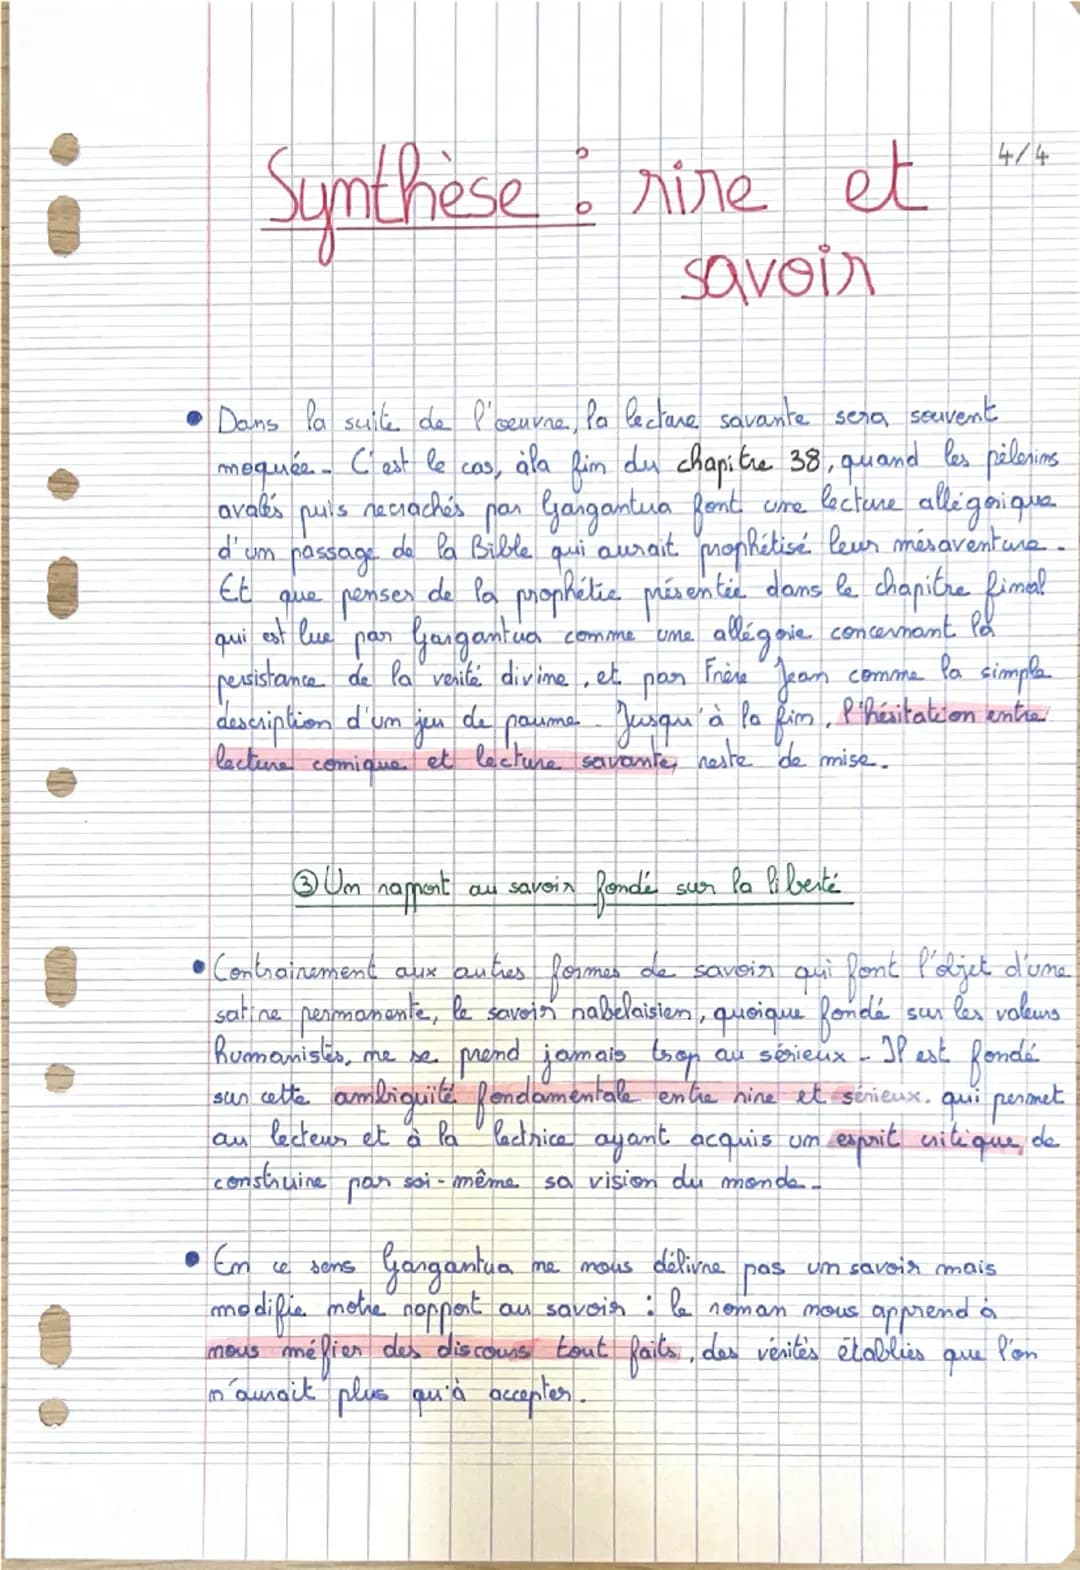 Synthèse : rire et
4/4
savoir
• Dans la suite de l'œuvre, la lecture savante sera souvent
moquée. C'est le cas, à la fin du chapitre 38, quand les pèlerins
avalés puis recrachés par Gargantua font une lecture allégorique
d'un passage de la Bible qui aurait prophétisé leur mésaventure.
Et que penser de la prophétie présentée dans le chapitre final
qui est lue par Gargantua comme une allégorie concernant la
persistance de la vérité divine, et par Frère Jean comme la simple
description d'un jeu de paume. Jusqu'à la fin, l'hésitation entre
lecture comique et lecture savante, reste de mise.
③ Un rapport au savoir fondé sur la liberté
• Contrairement aux autres formes de savoir qui font l'objet d'une
satire permanente, le savoir rabelaisien, quoique fondé sur les valeurs
humanistes, ne se prend jamais trop au sérieux. Il est fondé
sur cette ambiguïté fondamentale entre rire et sérieux, qui permet
au lecteur et à la lectrice ayant acquis un esprit critique, de
construire par soi-même sa vision du monde.
• En ce sens Gargantua ne nous délivre pas un savoir mais
modifie notre rapport au savoir : le roman nous apprend à
nous méfier des discours tout faits, des vérités établies que l'on
n'aurait plus qu'à accepter.